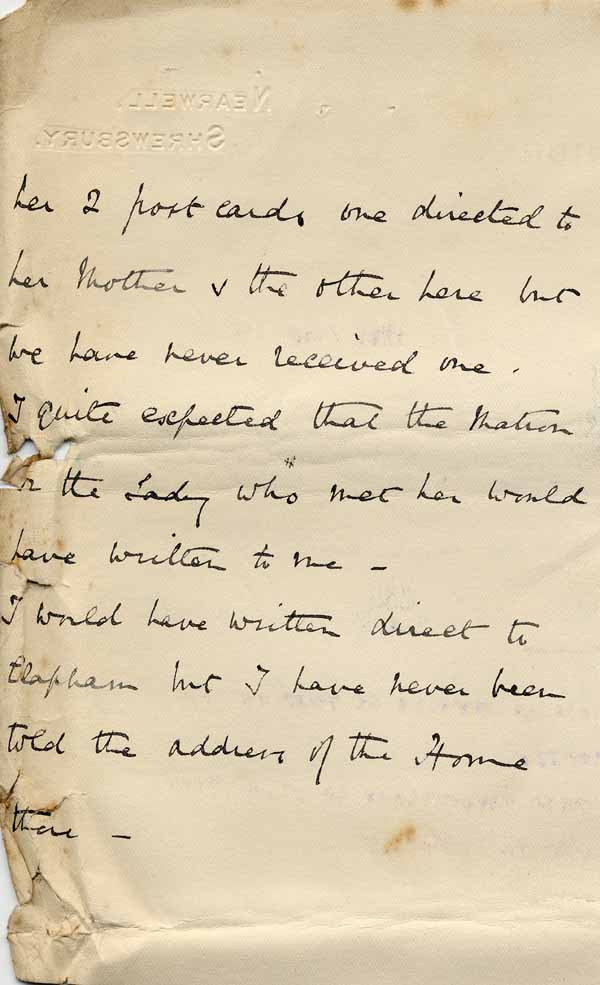 NEARWELL.
SHREWSBURY.
her 2 post cards one directed to
her Mother & the other here but
we have never received one.
I quite expected that the Matron
or the Lady who met her would
have written to me –
I would have written direct to
Clapham but I have never been
told the address of the Home
there –